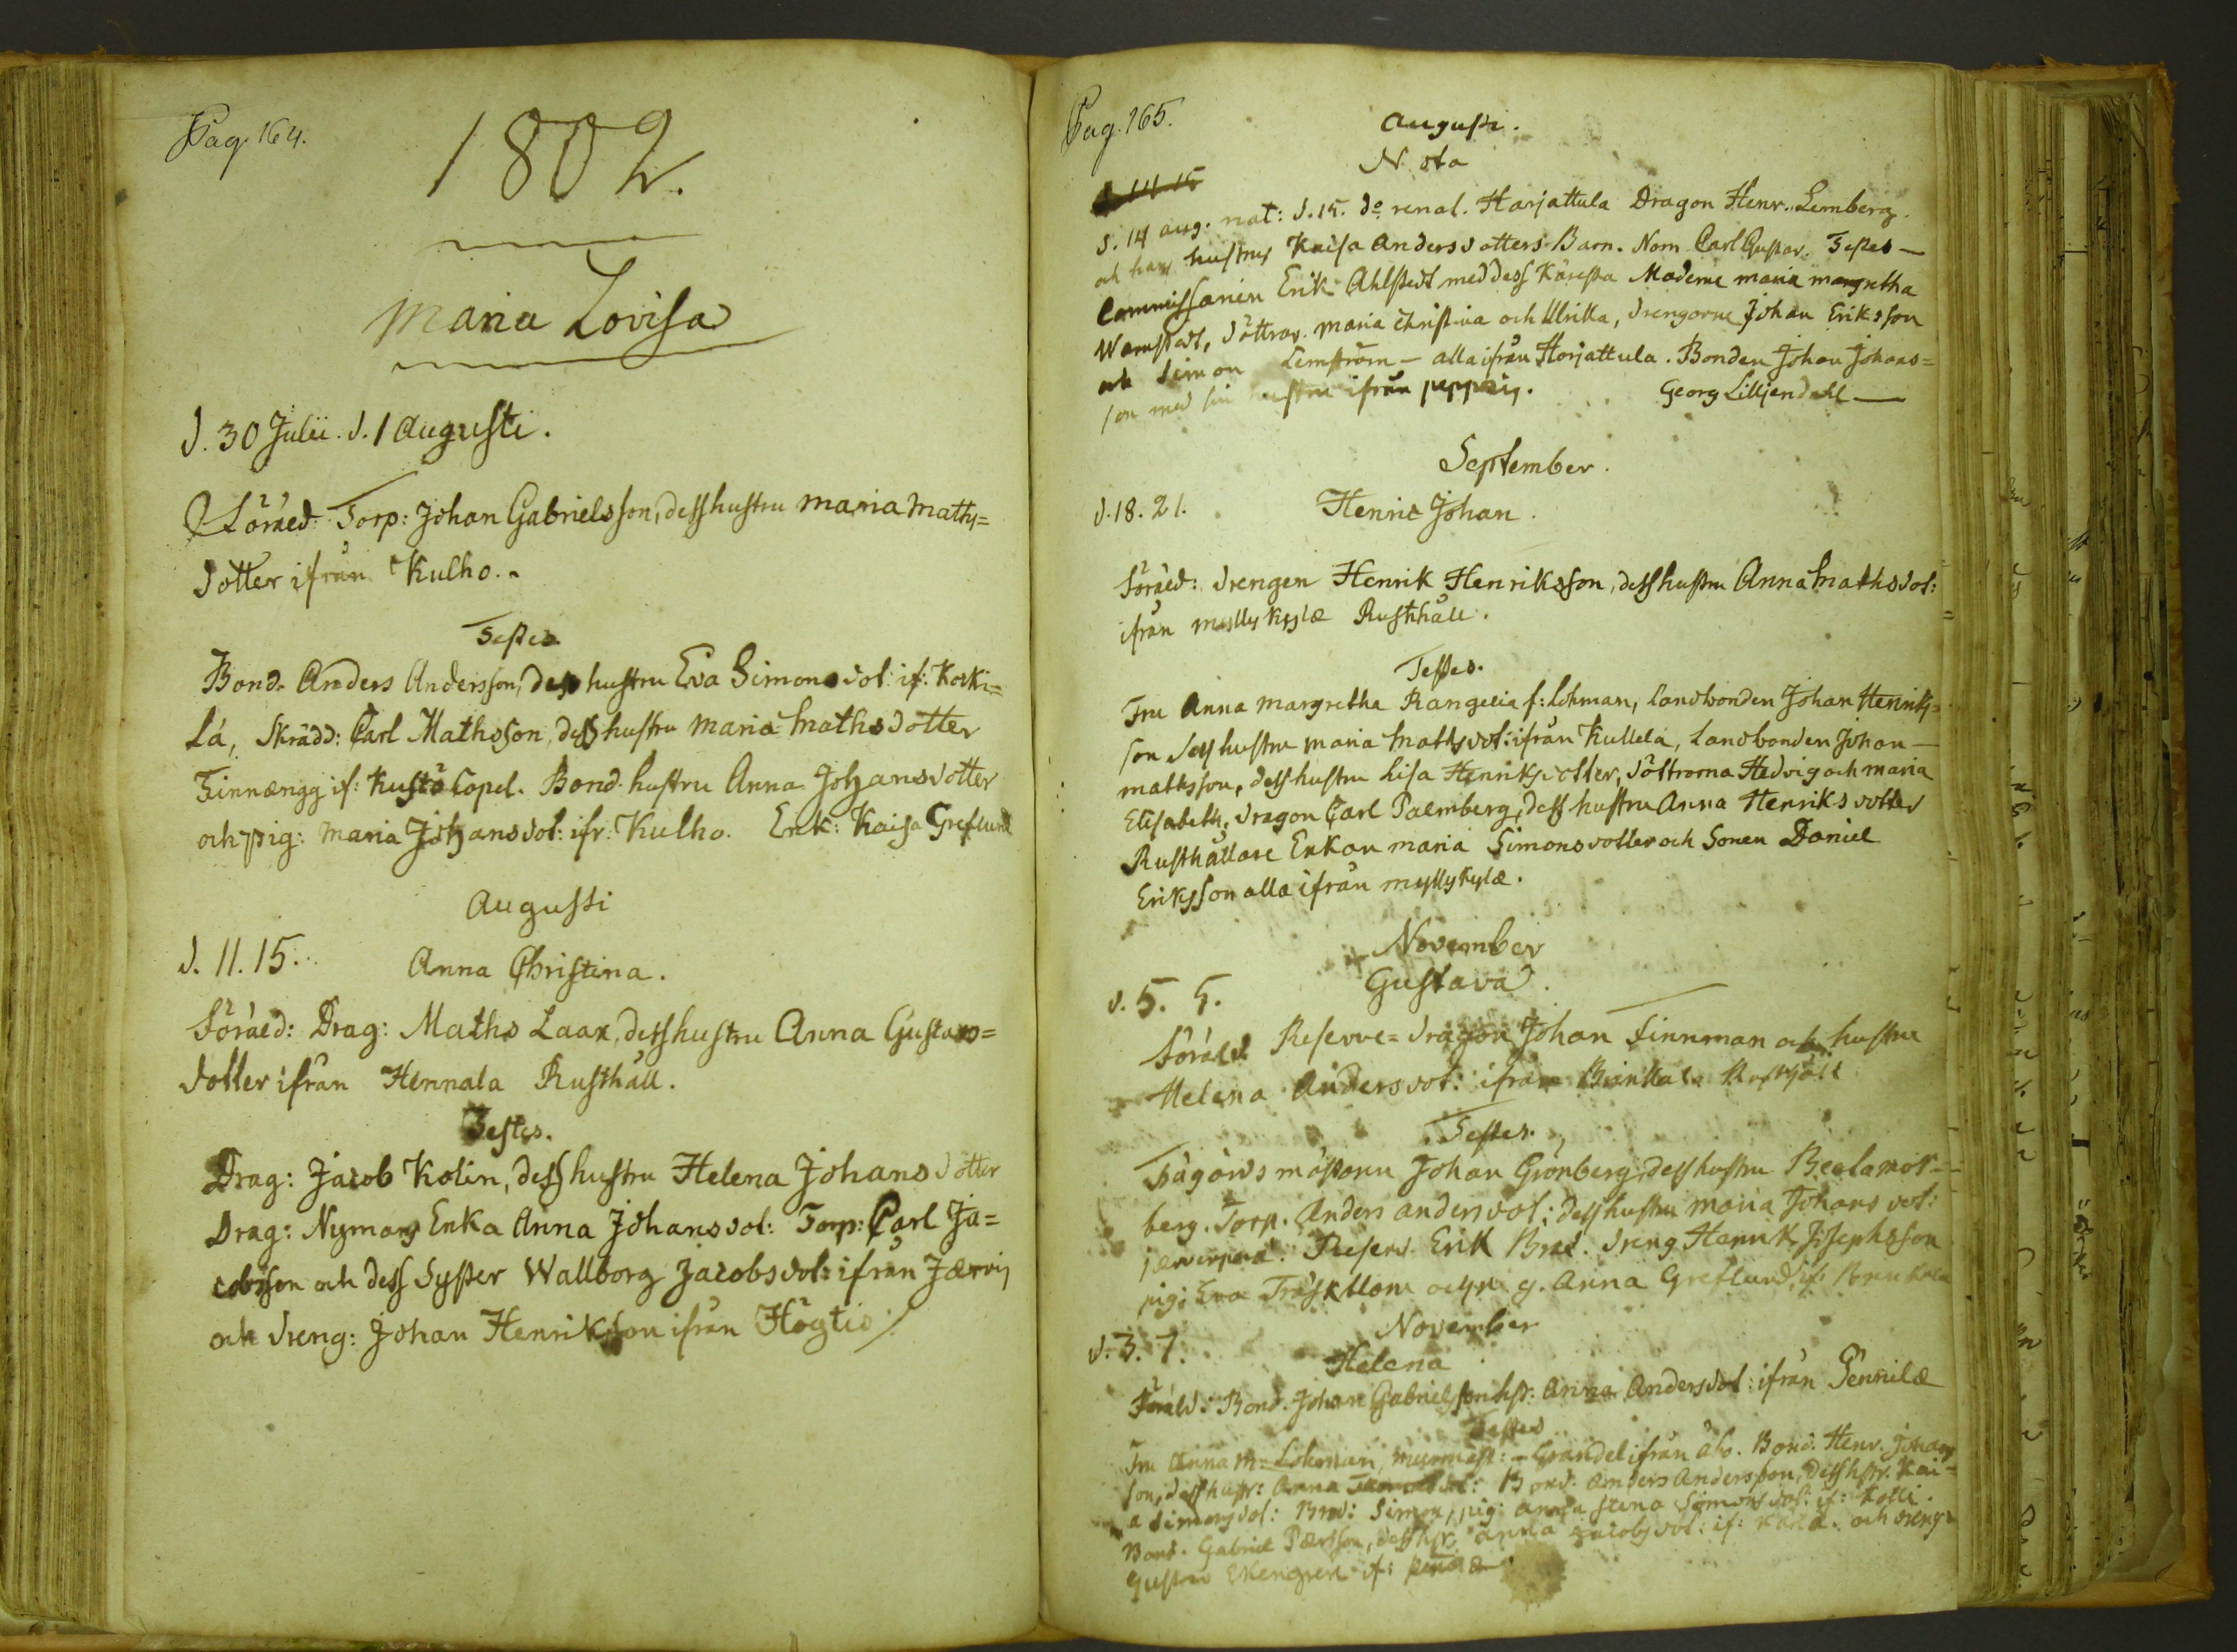 Pag. 164.
1802.
Maria Lovisa
d. 30 Julii. d. 1 Augusti.
Föräld: Torp: Johan Gabrielsson, dess hustru Maria Maths=
dotter ifrån Kulho.
Testes
Bond. Anders Andersson, dess hustru Eva Simonsdot: if: Korki=
la, Skrädd: Carl Mathsson, dess hustru Maria Mathsdotter
Finnængg if: Kustö Capel. Bond. hustru Anna Johansdotter
och pig: Maria Johansdot: ifr: Kulho. Enk: Kaisa Greflund
Augusti
d. 11. 15. Anna Christina.
Föräld: Drag: Maths Laax, dess hustru Anna Gustavs=
dotter ifrån Hennala Rusthåll.
Testes.
Drag: Jacob Kolin, dess hustru Helena Johansdotter
Drag: Nymans Enka Anna Johansdot: Torp: Carl Ja=
cobsson och dess Syster Wallborg Jacobsdot: ifrån Jærvis
och dreng: Johan Henriksson ifrån Högtio
Pag. 165.
Augusti.
Nota
d. 14 15
d. 14 aug. nat: d. 15. do renat. Harjattula Dragon Henr. Lemberg
och hans hustrus Kaisa Andersdotters Barn. Nom Carl Gustav. Testes —
Commissarien Erik Ahlstedt med dess Käresta Madame Maria Margretha
Warnstedt, döttrar Maria Christina och Ulrika, drengarne Johan Eriksson
och Simon Lemström — alla ifrån Harjattula. Bonden Johan Johans=
son med sin hustru ifrån
Georg Lilljendahl —
September.
d. 18. 21. Henric Johan.
Föräld: drengen Henrik Henriksson, dess hustru Anna Mathsdot:
ifrån Myllykylæ Rusthåll.
Testes.
Fru Anna Margretha Rangelia f: Lohman, Landbonden Johan Henriks=
son dess hustru Maria Mathsdot: ifrån Kullela, Landbonden Johan —
Mathsson, dess hustru Lisa Henriksdotter, döttrarna Hedvig och Maria
Elisabeth, dragon Carl Palmberg, dess hustru Anna Henriksdotter
Rusthållare Enkan Maria Simonsdotter och Sonen Daniel
Eriksson alla ifrån Myllykylæ.
November
Gustava.
d. 5. 5.
Föräld. Reserve=dragon Johan Finnman och hustru
Helena Andersdot: ifrån
Testes.
Johan Grönberg, dess hustru
berg. Torp. Anders dess hustru Maria Johansdot:
Reserv. Erik dreng Henrik Josephsson
pig: Eva Anna Greflund if:
November
d. 3. 7.
Helena
Föräld: Bond. Johan Gabrielsson hstr. Anna Andersdot: ifrån Pennilæ
Testes
Fru Anna M: Lohman, Grandel ifrån Åbo. Bond. Henr. Johans
son, dess hustr: Anna Bond. Anders Andersson, dess hstr. Kai=
a Simonsdot: Bond: Simon, pig: Anna Stina Simonsdot: if:
Bond. Gabriel dess hstr. Anna Jacobsdot: if: och dreng
Gustav Ekengren if: